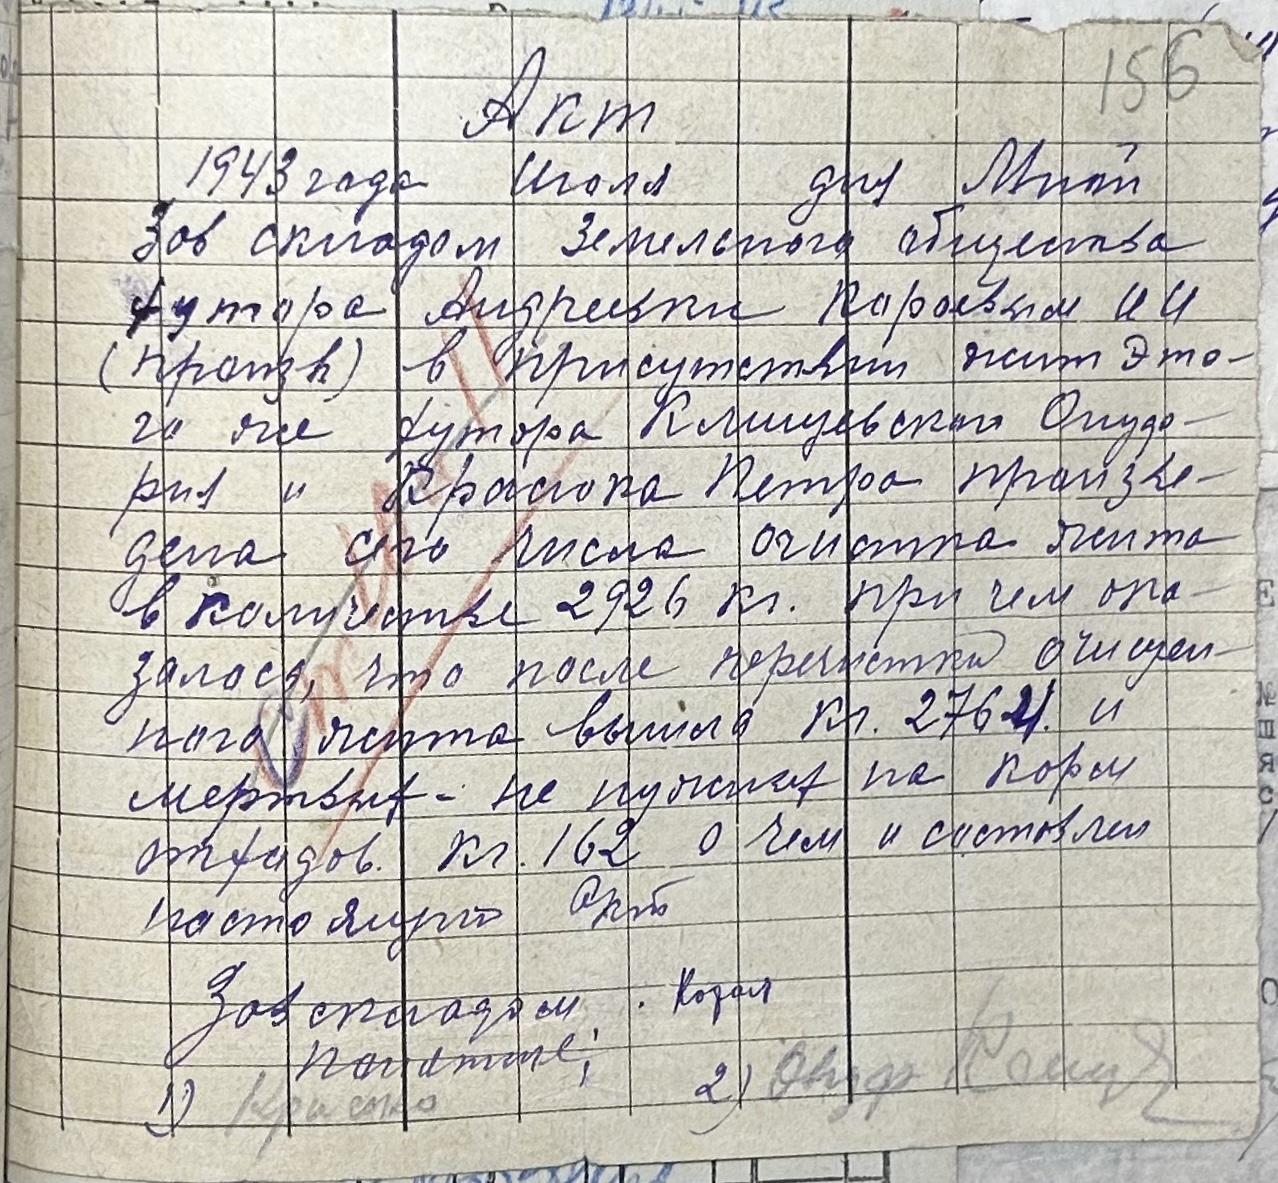 156
Акт
1943 года Июля дня Мной
Зав складом Земельного общества
хутора Андреевки Караевым И И
(Произв) в присутствии жит Это-
го же хутора Клищевской Онуфр-
рия и Красюка Петра произве-
дена сего числа очистка жита
в количестве 2926 кг. при чем ока-
залось, что после перечистки очищен-
ного жита вышло кг. 2764. и
мертвых - не нужных на корм
отходов. кг. 162 о чем и составлен
настоящий Акт
Зав складом
Понятые;
1) Красюк 2) Онуфр